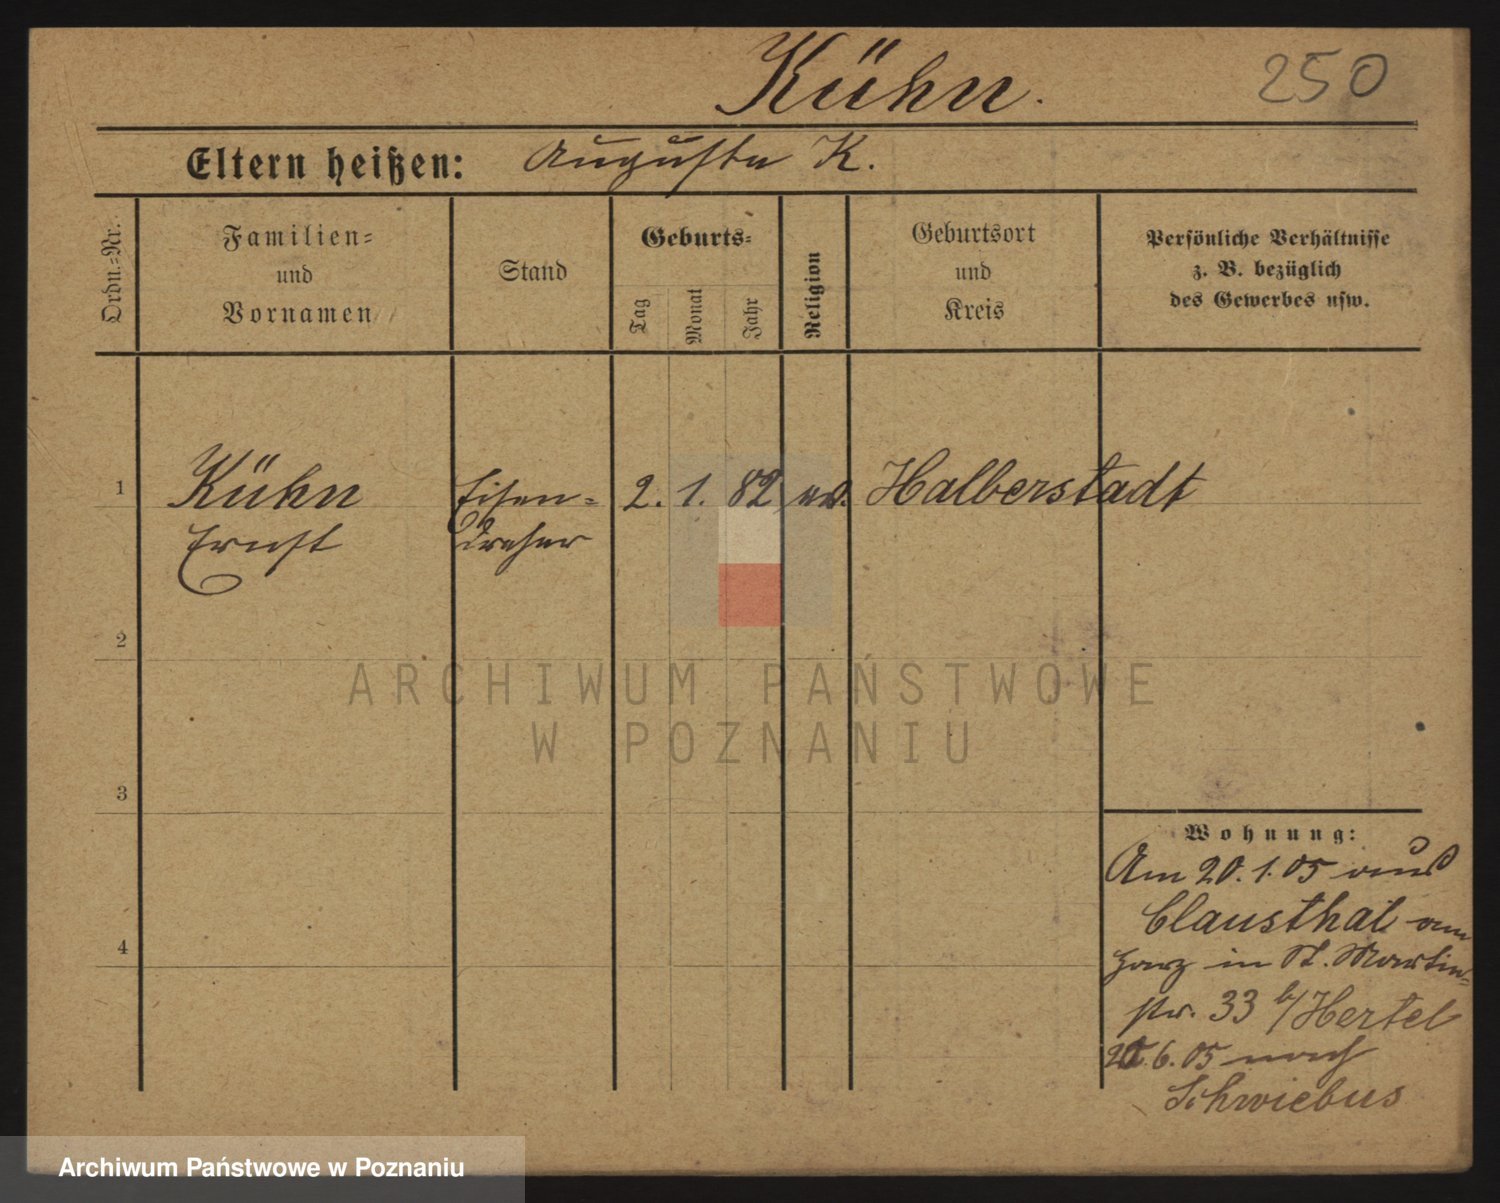 Kühn.
250
Eltern heißen: Auguste K.
Ordn.=Nr.
Familien=
und
Vornamen
Stand
Geburts=
Tag
Monat
Jahr
Religion
Geburtsort
und
Kreis
Persönliche Verhältnisse
z. B. bezüglich
des Gewerbes usw.
1 Kühn Eisen= 2. 1. 82 ev. Halberstadt
Ernst dreher
2
3
4
ARCHIWUM PAŃSTWOWE
W POZNANIU
Wohnung:
Am 20. 1. 05 aus
Clausthal am
Harz in St. Martin=
str. 33 b/ Hertel
6. 05 nach
Schwiebus
Archiwum Państwowe w Poznaniu